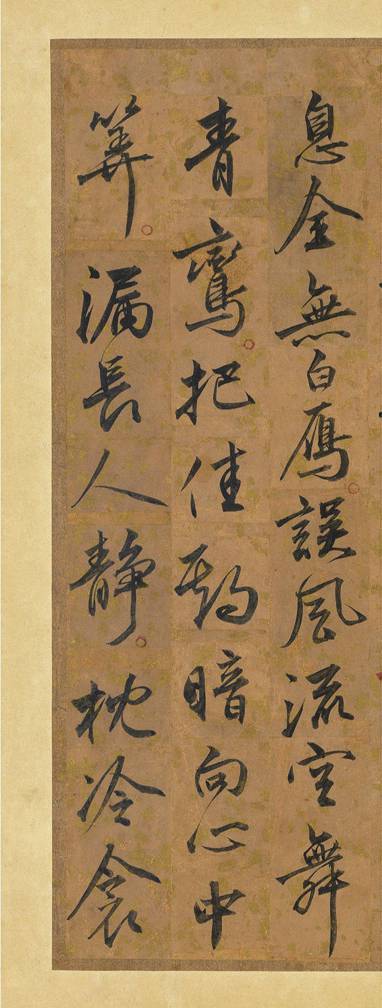 息全無白鴈誤風流空舞
青鸞把佳期暗向心中
筭漏長人靜枕冷衾